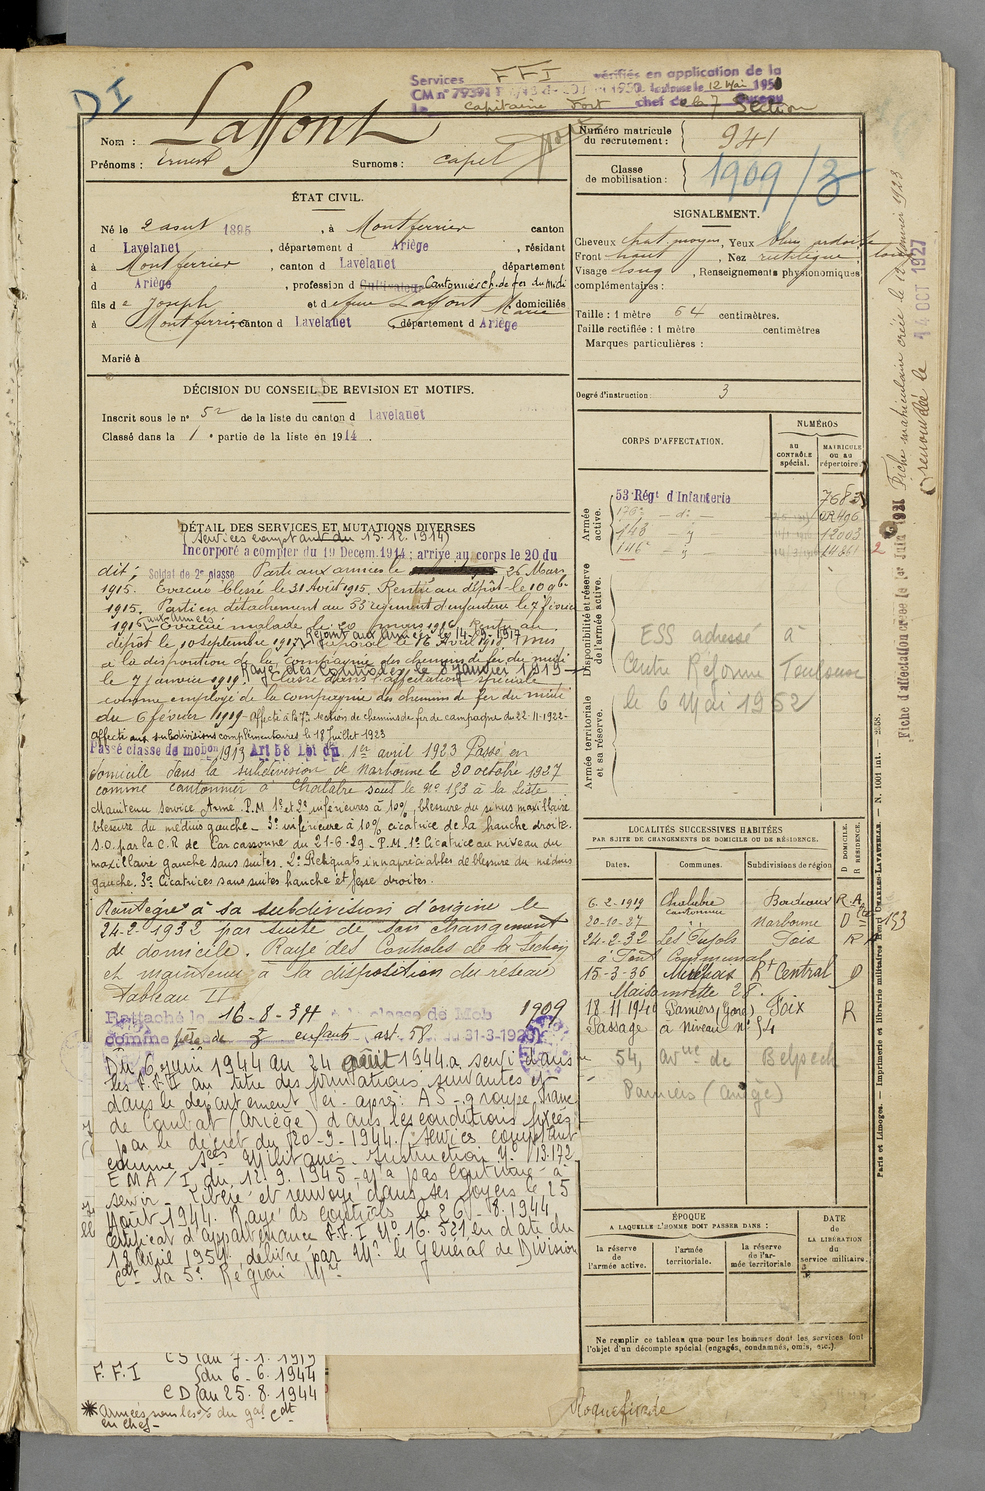 DI
Services FFI vérifiés en application de la
CM n° 79391 1950. Toulouse le 12 Mai 1950
Le Capitaine Fort chef de la 7 Section
Nom : Laffont
Prénoms : Ernest Surnoms : Capel
ÉTAT CIVIL.
Né le 2 août 1895, à Montferrier canton
d Lavelanet, département d Ariège, résidant
à Montferrier, canton d Lavelanet département
d Ariège, profession d Cultivateur Cantonnier Ch. de fer du Midi
fils de Joseph et de feue Laffont Marie domiciliés
à Montferrier canton d Lavelanet, département d Ariège
Marié à
DÉCISION DU CONSEIL DE REVISION ET MOTIFS.
Inscrit sous le n° 52 de la liste du canton d Lavelanet
Classé dans la 1e partie de la liste en 1914.
DÉTAIL DES SERVICES ET MUTATIONS DIVERSES
(Services comptant du 15.12.1914)
Incorporé a compter du 19 Decem. 1914 ; arrivé au corps le 20 du
dit ; Soldat de 2e classe Parti aux armées le 26 Mars
1915. Evacué blessé le 31 Août 1915. Rentré au dépôt le 10 9bre
1915. Parti en détachement au 53 régiment d'infanterie le 7 février
1916 aux Armées Evacué malade le 20 mars 1916. Rentré au
dépôt le 10 septembre 1917. Rejoint aux Armées le 14-9-1917 Caporal le 16 Avril 1918 Mis
à la disposition de la Compagnie des chemins de fer du midi
le 7 janvier 1919. Rayé des Contrôles le 8 janvier 1919
Classé dans l'affectation spéciale
comme employé de la compagnie des chemins de fer du midi
du 6 février 1919. Affecté à la 7e section de chemins de fer de campagne du 22-11-1922-
Affecté aux subdivisions complémentaires le 18 juillet 1923
Passé classe de mobon 1913 Art 58 Loi du 1er avril 1923 Passé en
domicile dans la subdivision de Narbonne le 20 octobre 1927
comme cantonnier à Chalabre sous le N° 153 à la Liste
Maintenu Service Armé. P.M 1° et 2° inférieures à 10% blessure du sinus maxillaire
blessure du médius gauche - 3° inférieure à 10% cicatrice de la hanche droite.
S.O. par la C.R de Carcassonne du 21-6-29 - P.M. 1° Cicatrice au niveau du
maxillaire gauche sans suites. 2° Reliquats innapréciables de blessure du médius
gauche. 3° Cicatrices sans suites hanche et fesse droites.
Réintégré à sa subdivision d'origine le
24-2-1932 par suite de son changement
de domicile. Rayé des Controles de la Section
et maintenu à la disposition du réseau
Tableau II
Rattaché le 16-8-34 à la classe de Mob 1909
comme père de 2 enfants art. 58 du 31-3-1928
Du 6 juin 1944 au 24 août 1944 a servi dans
les F.F.I au titre des formations suivantes et
dans le département ci-après : AS - groupe franc
de Comliat (Ariège) dans les conditions fixées
par le décret du 20-9-1944. (Services comptant
comme Sces Militaires - Instruction N° 13.172
EMA/I du 12.9.1945 - n'a pas continué à
servir - Libéré et renvoyé dans ses foyers le 25
Août 1944. Rayé des contrôles le 26.8.1944.
Certificat d'appartenance F.F.I N° 16.521 en date du
Avril 195 délivré par Mr le Général de Division
Cdt la 5e Région Mre
CS au 7.1.1919
F.F.I du 6-6.1944
CD au 25.8.1944
✱ Armées sous les o/ du gal Cdt
en chef-
Numéro matricule
du recrutement : 941
Classe
de mobilisation : 1909/3
SIGNALEMENT.
Cheveux chat. moyen, Yeux bleu ardoisé
Front haut, Nez rectiligne, long
Visage long, Renseignements physionomiques
complémentaires :
Taille : 1 mètre 64 centimètres.
Taille rectifiée : 1 mètre centimètres
Marques particulières :
Degré d'instruction 3
CORPS D'AFFECTATION.
NUMÉROS
AU CONTRÔLE spécial.
MATRICULE OU AU répertoire.
Armée active.
53 Régt d'Infanterie 7683
148 - 12003
146e - 14861
Disponibilité et réserve de l'armée active.
ESS adressé à
Centre Réforme Toulouse
le 6 Mai 1952
Armée territoriale et sa réserve.
LOCALITÉS SUCCESSIVES HABITÉES
PAR SUITE DE CHANGEMENTS DE DOMICILE OU DE RÉSIDENCE.
Dates. Communes. Subdivisions de région D DOMICILE. R RÉSIDENCE.
6-2-1919 Chalabre Bordeaux R-A
cantonnier
20-10-27 " Narbonne D 153
24-2-32 Les Pujols Foix R
à Font Communal
15-3-36 Rt Central D
Maisonnette 28.
18-11-1940 Pamiers (Gare) Foix R
Passage à Niveau n° 54
54, Avnue de Belpech
Pamiers (Ariège)
ÉPOQUE
A LAQUELLE L'HOMME DOIT PASSER DANS :
la réserve de l'armée active.
l'armée territoriale.
la réserve de l'armée territoriale
DATE de LA LIBÉRATION du service militaire.
Ne remplir ce tableau que pour les hommes dont les services font
l'objet d'un décompte spécial (engagés, condamnés, omis, etc.).
Roquefixade
Fiche matriculaire créée le 12 Janvier 1923
renouvelée le 14 OCT 1927
Fiche d'affectation créée le 1er Juin 1931
Paris et Limoges. — Imprimerie et librairie militaires Henri CHARLES-LAVAUZELLE. — N. 1001 int. — 2-58.